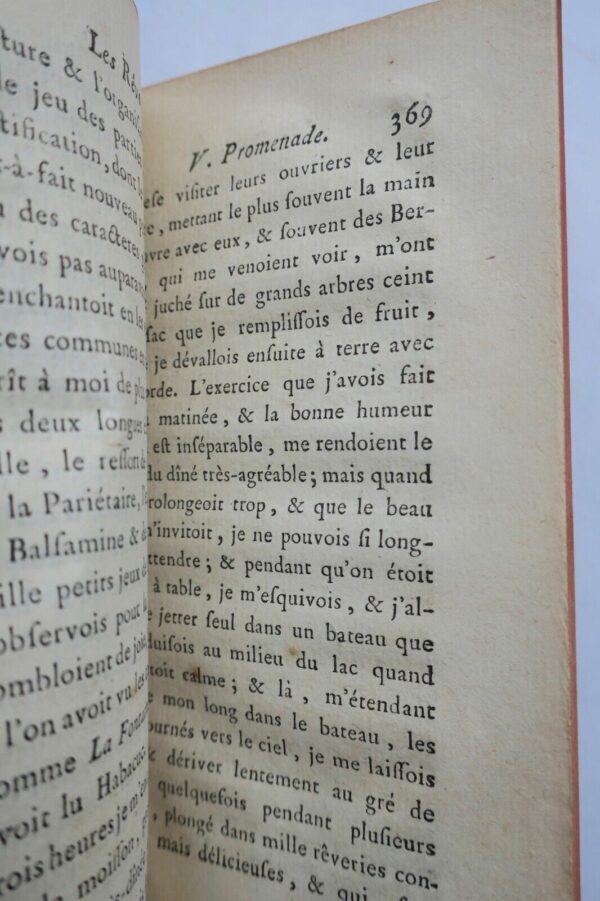 Les Rê
ture & l'organi
le jeu des parties
tification, dont l
t-à-fait nouveau
n des caracteres
vois pas aupara
enchantoit en les
tes communes
rît à moi de plu
s deux longues
lle, le reſſort de
la Pariétaire,
Balſamine &
ille petits jeux de
obſervois pour la
ombloient de joie
l'on avoit vu les
omme La Fontai
voit lu Habacuc.
rois heures je m'en
de moiſſon,
V. Promenade. 369
eſe viſiter leurs ouvriers & leur
te, mettant le plus ſouvent la main
uvre avec eux, & ſouvent des Ber-
qui me venoient voir, m'ont
juché ſur de grands arbres ceint
ſac que je rempliſſois de fruit,
je dévallois enſuite à terre avec
orde. L'exercice que j'avois fait
matinée, & la bonne humeur
eſt inſéparable, me rendoient le
du dîné très-agréable; mais quand
rolongeoit trop, & que le beau
m'invitoit, je ne pouvois ſi long-
ttendre; & pendant qu'on étoit
à table, je m'eſquivois, & j'al-
e jetter ſeul dans un bateau que
duiſois au milieu du lac quand
étoit calme; & là, m'étendant
e mon long dans le bateau, les
ournés vers le ciel, je me laiſſois
& dériver lentement au gré de
quelquefois pendant pluſieurs
, plongé dans mille rêveries con-
mais délicieuſes, & qui